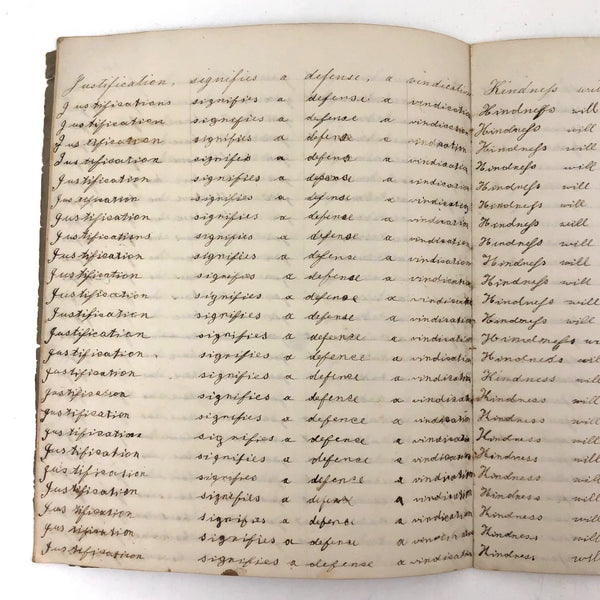 Justification, signifies a defense, a vindication
Justifications signifies a defense a vindication
Justification signifies a defense a vindication
Justification signifies a defense a vindication
Justification signifies a defense a vindication
Justification signifies a defense a vindication
Justification signifies a defense a vindication
Justification signifies a defense a vindication
Justifications signifies a defense a vindication
Justification signifies a defense a vindication
Justification signifies a defense a vindication
Justification signifies a defense a vindication
Justification signifies a defense a vindication
Justification signifies a defence a vindication
Justification signifies a defense a vindication
Justification signifies a defense a vindication
Justification signifies a defence a vindication
Justification signifies a defense a vindication
Justification signifies a defense a vindication
Justification signifies a defense a vindication
Justification signifies a defense a vindication
Justification signifies a defense a vindication
Justification signifies a defense a
Justification signifies a defense a vindication
Kindness will
Kindness will
Kindness will
Kindness will
Kindness will
Kindness will
Kindness will
Kindness will
Kindness will
Kindness will
Kindness will
Kindness will
Kindness will
Kindness
Kindness will
Kindness will
Kindness will
Kindness will
Kindness will
Kindness will
Kindness will
Kindness will
Kindness will
Kindness will
Kindness will